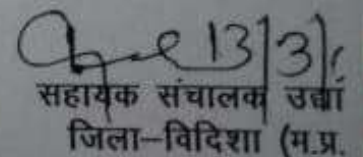 13/3/
सहायक संचालक उद्या
जिला–विदिशा (म.प्र.